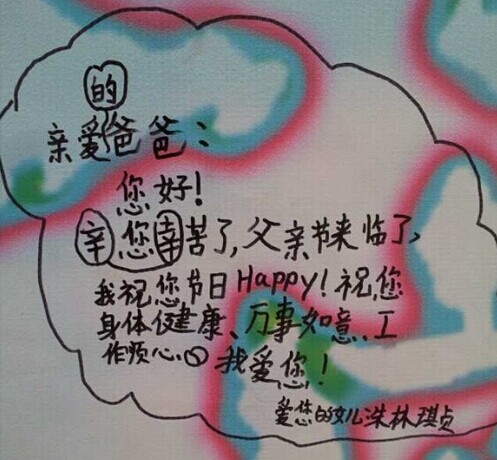 的
亲爱爸爸：
您好！
辛您幸苦了,父亲节来临了,
我祝您节日Happy!祝您
身体健康、万事如意、工
作顺心。我爱您！
爱您的女儿洙林琪贞